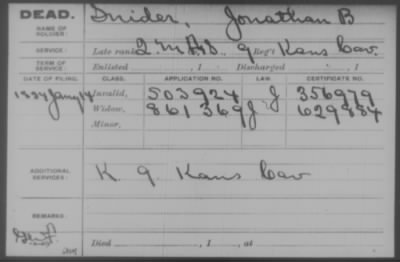 DEAD. Snider, Jonathan B
NAME OF SOLDIER:
SERVICE: Late rank, Q.M. Reg't Kans Cav.
TERM OF SERVICE: Enlisted , 1 Discharged , 1
DATE OF FILING. CLASS. APPLICATION NO. LAW. CERTIFICATE NO.
Invalid, 503924 J 356979
Widow, 861369 J 629884
Minor,
ADDITIONAL SERVICES: K 9 Kans Cav
REMARKS:
Died , 1 , at